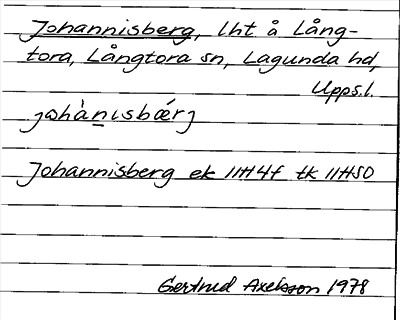 Johannisberg, lht å Lång-
tora, Långtora sn, Lagunda hd,
Upps.l.
jωhànɩsbǽrj
Johannisberg ek 11H4f tk 11H50
Gertrud Axelsson 1978